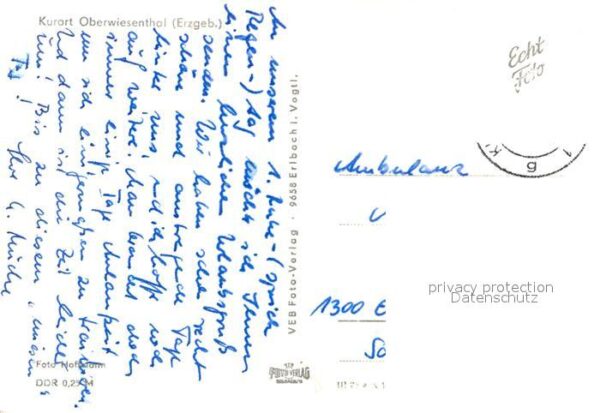 Kurort Oberwiesenthal (Erzgeb.)
An unserem 1. Ruhe- (sprich
Regen-) tag möchte ich Ihnen
einen herzlichen Urlaubsgruß
senden. Wir haben schon recht
schöne und anstrengende Tage
hinter uns, und ich hoffe noch
auf weitere. Man braucht doch
immer einige Tage Anlaufzeit
um sich einigermaßen zu trainieren.
Und dann ist die Zeit leider
um! Bis zu diesem
Ihr
Foto Hoffmann
DDR 0,25 M
VEB Foto-Verlag · 9658 Erlbach i. Vogtl.
FOTO VERLAG
Echt
Foto
Ambulanz
1300 E
privacy protection
Datenschutz